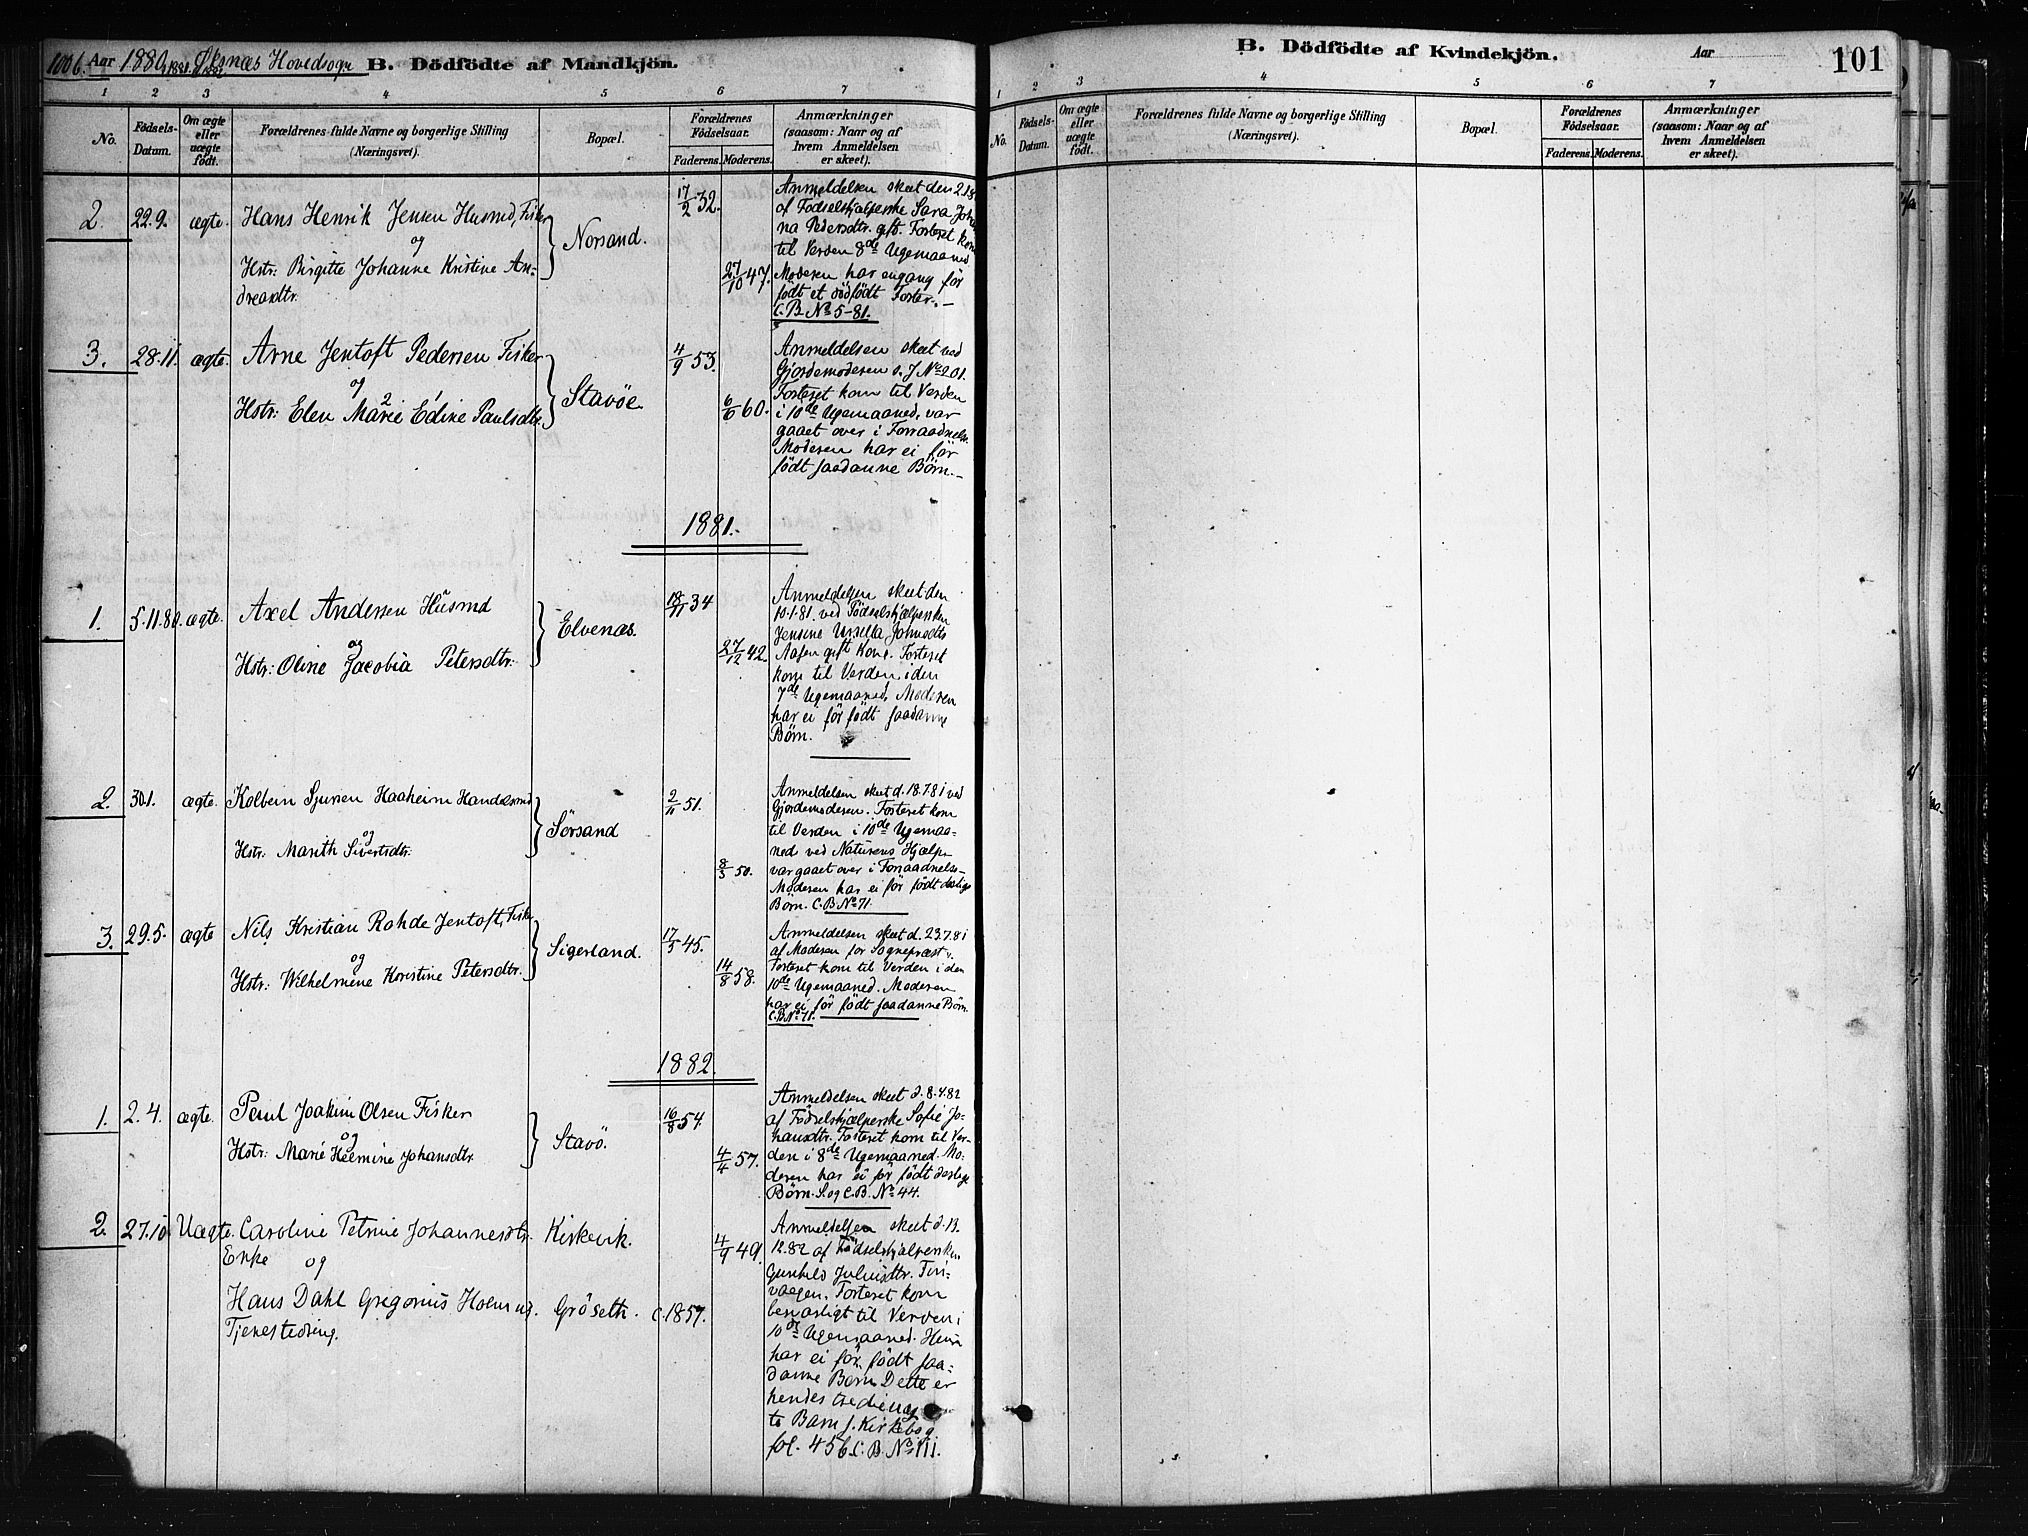 100b. Aar 1880, 1881, 1882. Øksnes Hovedsogn B. Dödfödte af Mandkjön.
1 2 3 4 5 6 7
No.
Födsels-Datum.
Om ægte eller uægte födt.
Forældrenes fulde Navne og borgerlige Stilling (Næringsvei).
Bopæl.
Forældrenes Födselsaar.
Faderens. Moderens.
Anmærkninger (saasom: Naar og af hvem Anmeldelsen er skeet).
2. 22.9. ægte. Hans Henrik Jensen Husmd, Fisker
og
Hstr: Birgitte Johanne Kristine An-
dreasdtr.
Norsand.
17/2 32.
27/10 47.
Anmeldelsen skeet den
af Födselshjælperske Sara Joha
na Pedersdtr. gift. Fosteret kom
til Verden 8de Ugemaaned
Moderen har engang för
födt et dödfödt Foster.-
C.B. No 5-81.
3. 28.11. ægte. Arne Jentoft Pedersen Fisker
og
Hstr: Elen Marie Edine Paulsdtr.
Stavöe.
4/9 53.
6/6 60.
Anmeldelsen skeet ved
Gjordemoderen s. J No 201.
Fosteret kom til Verden
i 10de Ugemaaned, var
gaaet over i Forraadnelse.
Moderen har ei för
födt saadanne Børn.-
1881.
1. 5.11.80. ægte. Axel Andersen Husmd
og
Hstr: Oline Jacobia Petersdtr.
Elvenæs.
18/11 34
27/12 42.
Anmeldelsen skeet den
10.1.81. ved Födselshjælpersken
Jensine Ursella Johnsdtr
Aasen gift Kone. Fosteret
kom til Verden i den
7de Ugemaaned. Moderen
har ei för födt saadanne
Börn.
2. 30.1. ægte. Kolbein Sjursen Haaheim Handelsmd
og
Hstr: Marith Sivertsdtr.
Sörsand
2/11 51.
8/5 50.
Anmeldelsen skeet d. 18.7.81 ved
Gjordemoderen. Fosteret kom
til Verden i 10de Ugemaa-
ned ved Naturens Hjælp-
var gaaet over i Forraadnelse-
Moderen har ei för födt deslige
Børn. C.B No 71.
3. 29.5. ægte Nils Kristian Rohde Jentoft, Fisker
og
Hstr: Wilhelmine Kristine Petersdtr.
Sigerland.
17/5 45.
14/8 58.
Anmeldelsen skeet d. 23.7.81
af Moderen for Sognepræst v.
Fosteret kom til Verden i den
10de Ugemaaned. Moderen
har ei för födt saadanne Børn.
C.B No 71.
1882.
1. 2.4. ægte. Paul Joakim Olsen Fisker
og
Hstr: Marie Hermine Johansdtr.
Stavö.
16/8 54.
4/4 57.
Anmeldelsen skeet d. 8.4.82
af Födselshjælperske Sofie Jo-
hansdtr. Fosteret kom til Ver-
den i 8de Ugemaaned. Mo-
deren har ei för födt deslige
Børn. S. og C.B. No 44.
2. 27.10. Uægte. Caroline Petrine Johannesdtr. Kirkevik.
Enke og
4/9 49.
Hans Dahl Gregorius Holm ug. Gröseth. c. 1857.
Tjenestedreng.
Anmeldelsen skeet d. 13.
12.82 af Födselshjælpersken
Gunhild Juliusdtr. Tin-
vaagen. Fosteret kom
til Verden i
10de Ugemaaned. Hun
har ei för födt saa-
danne Børn. Dette er
hendes tredie uæg-
te Barn f. Kirkebog
fol. 456 C.B. No 111.
B. Dödfödte af Kvindekjön. Aar 101
1 2 3 4 5 6 7
No.
Födsels-Datum.
Om ægte eller uægte födt.
Forældrenes fulde Navne og borgerlige Stilling (Næringsvei).
Bopæl.
Forældrenes Födselsaar.
Faderens. Moderens.
Anmærkninger (saasom: Naar og af hvem Anmeldelsen er skeet).